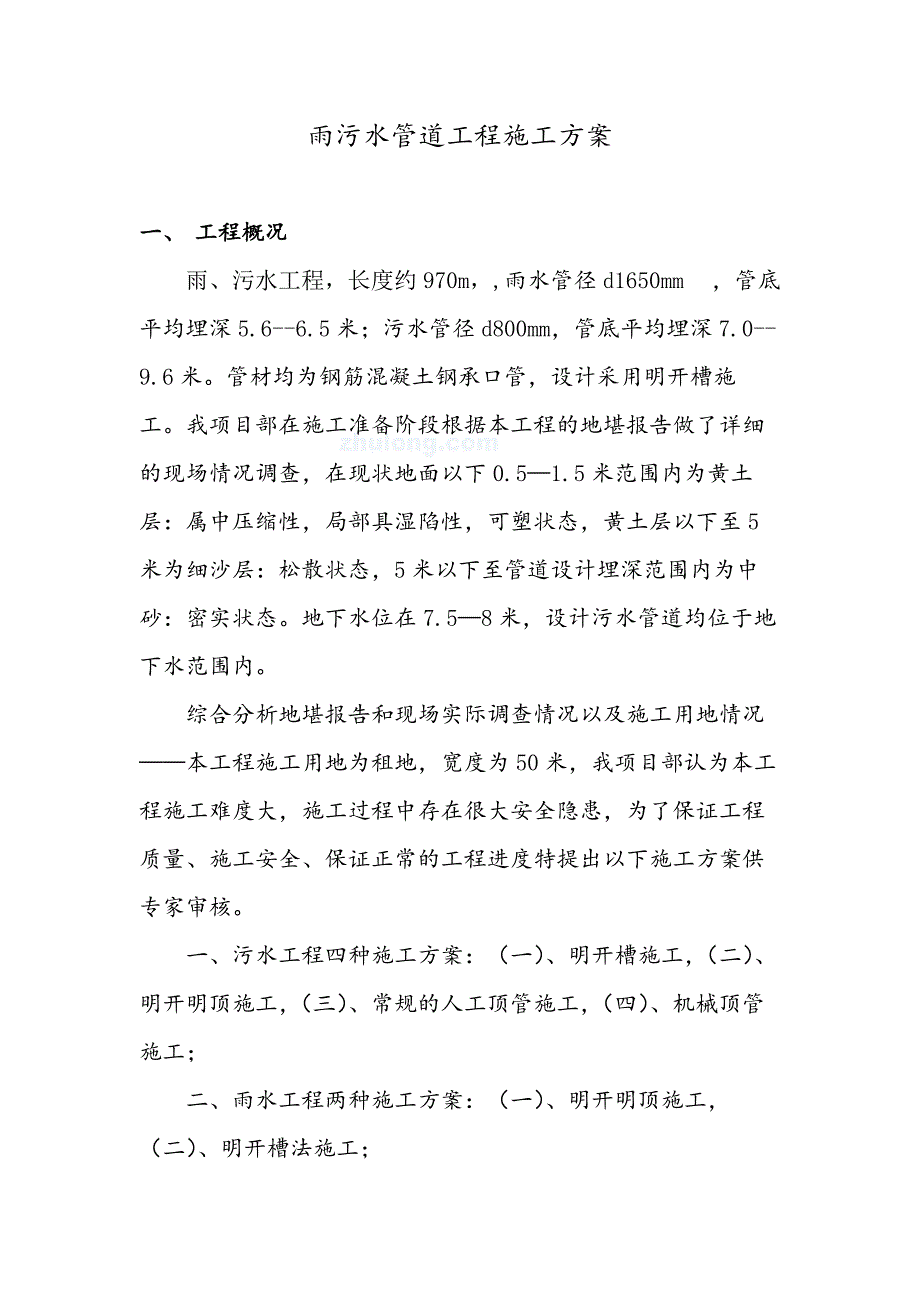 雨污水管道工程施工方案
一、 工程概况
雨、污水工程，长度约970m，,雨水管径d1650mm ，管底
平均埋深5.6--6.5米；污水管径d800mm，管底平均埋深7.0--
9.6米。管材均为钢筋混凝土钢承口管，设计采用明开槽施
工。我项目部在施工准备阶段根据本工程的地堪报告做了详细
zhulong.com
的现场情况调查，在现状地面以下0.5—1.5米范围内为黄土
层：属中压缩性，局部具湿陷性，可塑状态，黄土层以下至5
米为细沙层：松散状态，5米以下至管道设计埋深范围内为中
砂：密实状态。地下水位在7.5—8米，设计污水管道均位于地
下水范围内。
综合分析地堪报告和现场实际调查情况以及施工用地情况
——本工程施工用地为租地，宽度为50米，我项目部认为本工
程施工难度大，施工过程中存在很大安全隐患，为了保证工程
质量、施工安全、保证正常的工程进度特提出以下施工方案供
专家审核。
一、污水工程四种施工方案：（一）、明开槽施工，（二）、
明开明顶施工，（三）、常规的人工顶管施工，（四）、机械顶管
施工；
二、雨水工程两种施工方案：（一）、明开明顶施工，
（二）、明开槽法施工；